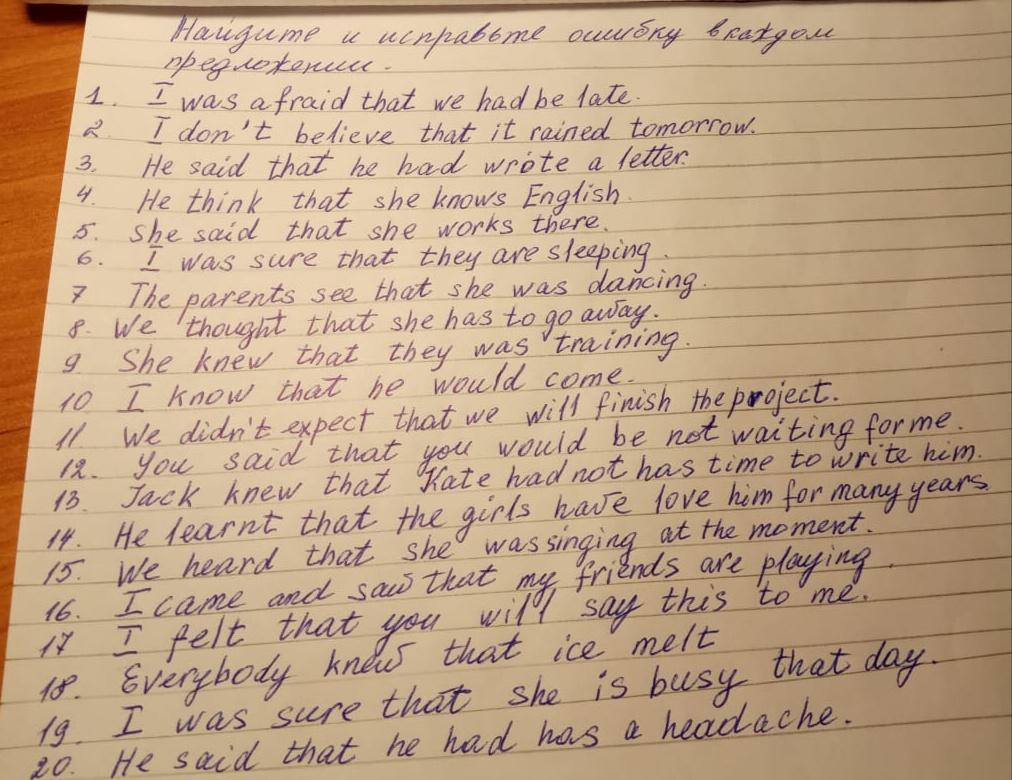 Найдите и исправьте ошибку в каждом
предложении.
1. I was afraid that we had be late.
2. I don't believe that it rained tomorrow.
3. He said that he had wrote a letter.
4. He think that she knows English.
5. She said that she works there.
6. I was sure that they are sleeping.
7 The parents see that she was dancing.
8. We thought that she has to go away.
9 She knew that they was training.
10 I know that he would come.
11 We didn't expect that we will finish the project.
12. You said that you would be not waiting for me.
13. Jack knew that Kate had not has time to write him.
14. He learnt that the girls have love him for many years.
15. We heard that she was singing at the moment.
16. I came and saw that my friends are playing.
17 I felt that you will say this to me.
18. Everybody knew that ice melt
19. I was sure that she is busy that day.
20. He said that he had has a headache.